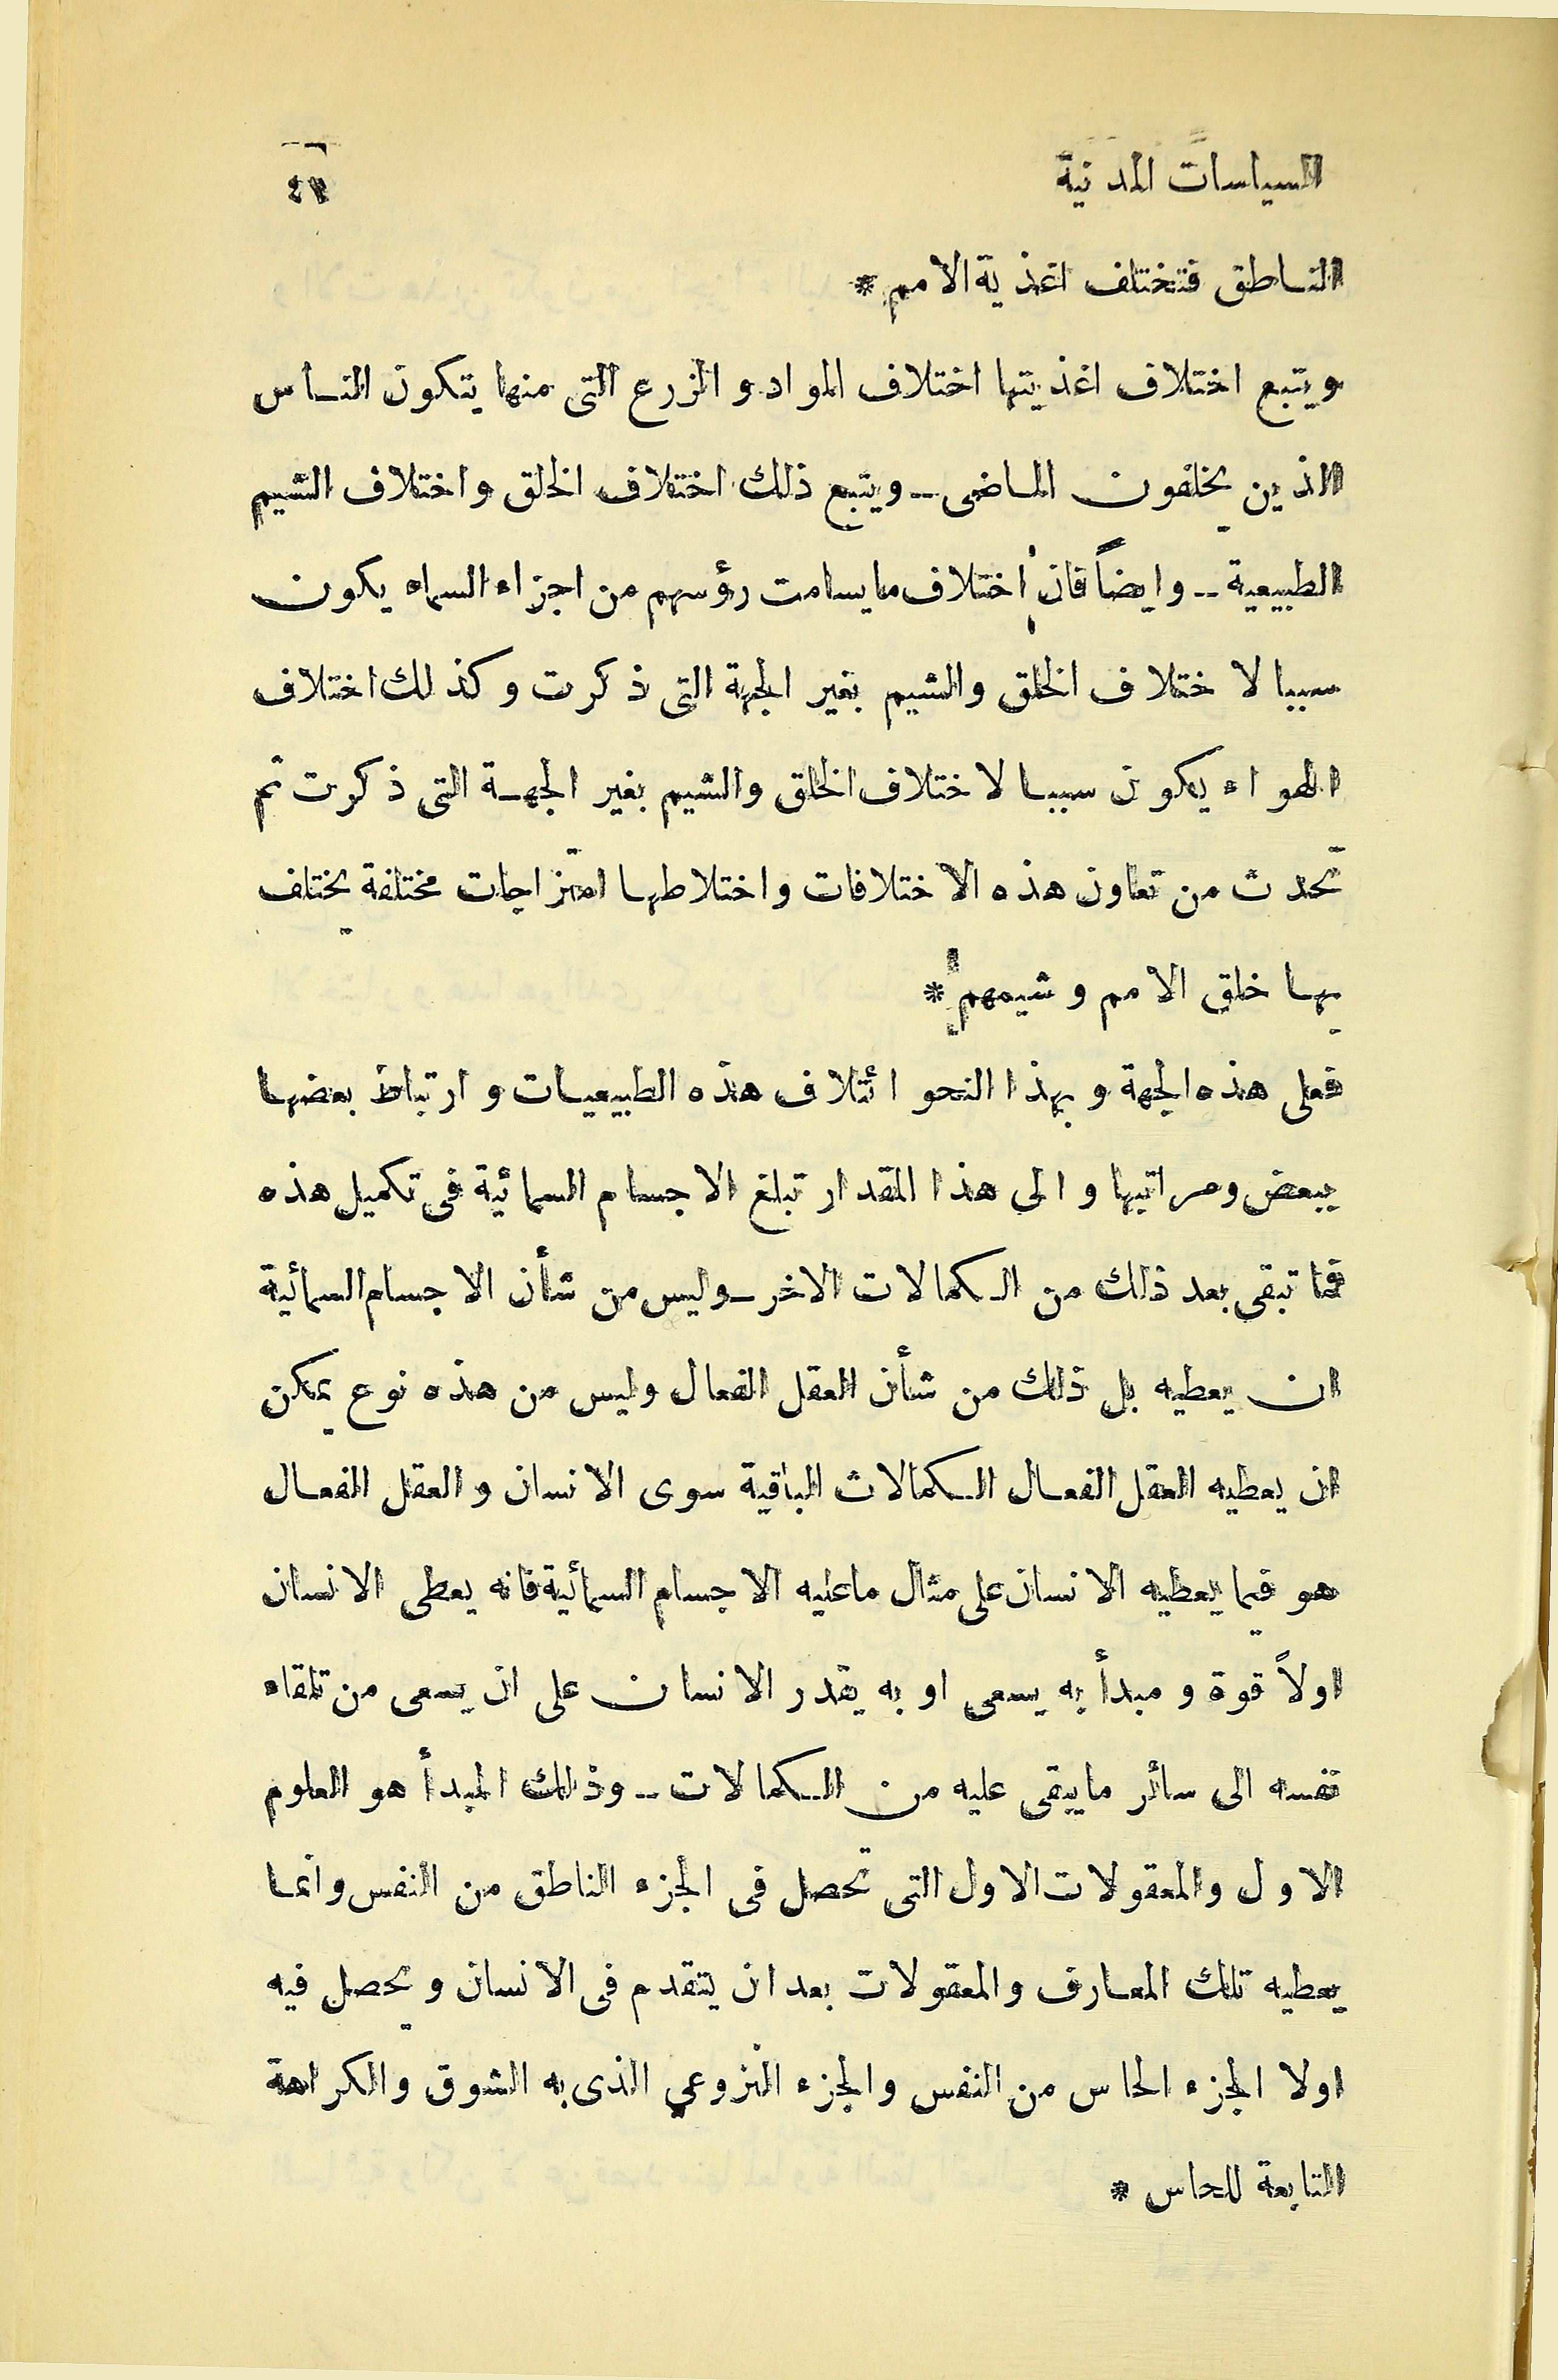 السياسات المدنية
الناطق فتختلف اغذية الامم *
ويتبع اختلاف اغذيتها اختلاف المواد و الزرع التى منها يتكون الناس
الذين يخلفون الماضى ــ ويتبع ذلك اختلاف الخلق واختلاف الشيم
الطبيعية ــ وايضاً فان اختلاف مايسامت رؤسهم من اجزاء السماء يكون
سببا لاختلاف الخلق والشيم بغير الجهة التى ذكرت وكذلك اختلاف
الهواء يكون سببا لاختلاف الخلق والشيم بغير الجهة التى ذكرت ثم
تحدث من تعاون هذه الاختلافات واختلاطها امتزاجات مختلفة يختلف
بها خلق الامم وشيمهم *
فعلى هذه الجهة و بهذا النحو ائتلاف هذه الطبيعيات و ارتباط بعضها
ببعض ومراتبها و الى هذا المقدار تبلغ الاجسام السمائية فى تكميل هذه
فما تبقى بعد ذلك من الكمالات الاخر ــ وليس من شأن الاجسام السمائية
ان يعطيه بل ذلك من شأن العقل الفعال وليس من هذه نوع يمكن
ان يعطيه العقل الفعال الكمالات الباقية سوى الانسان و العقل الفعال
هو فيما يعطيه الانسان على مثال ماعليه الاجسام السمائية فانه يعطى الانسان
اولاً قوة و مبدأ به يسعى او به يقدر الانسان على ان يسعى من تلقاء
نفسه الى سائر مايبقى عليه من الكمالات ــ وذلك المبدأ هو العلوم
الاول والمعقولات الاول التى تحصل فى الجزء الناطق من النفس وانما
يعطيه تلك المعارف والمعقولات بعد ان يتقدم فى الانسان ويحصل فيه
اولا الجزء الحاس من النفس والجزء النزوعي الذى به الشوق والكراهة
التابعة للحاس *